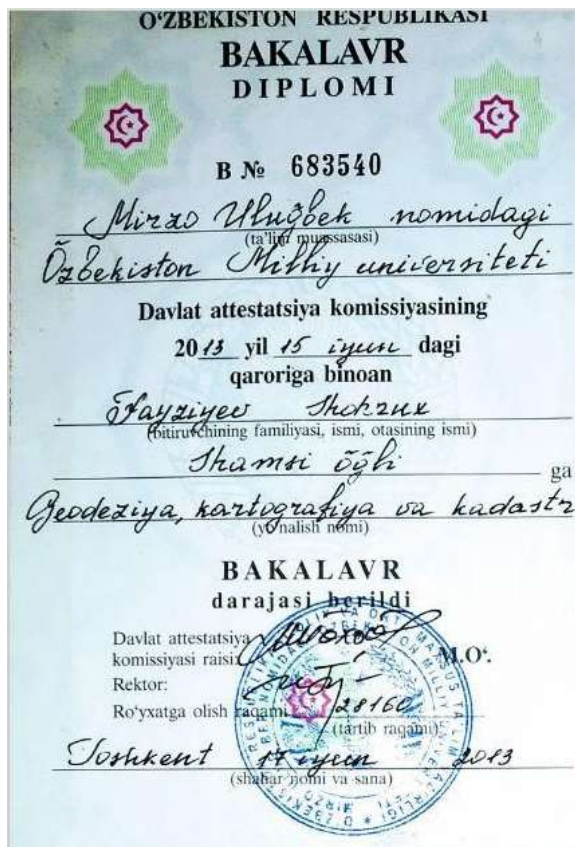 O'ZBEKISTON RESPUBLIKASI
BAKALAVR
DIPLOMI
B № 683540
Mirzo Uluğbek nomidagi
(ta'lim muassasasi)
Õzbekiston Milliy universiteti
Davlat attestatsiya komissiyasining
2013 yil 15 iyun dagi
qaroriga binoan
Fayziyev Shohrux
(bitiruvchining familiyasi, ismi, otasining ismi)
Shamsi õğli ga
Geodeziya, kartografiya va kadastr
(yo'nalish nomi)
BAKALAVR
darajasi berildi
Davlat attestatsiya
komissiyasi raisi: M.O'.
Rektor:
Ro'yxatga olish raqami 28160
(tartib raqami)
Toshkent 17 iyun 2013
(shahar nomi va sana)